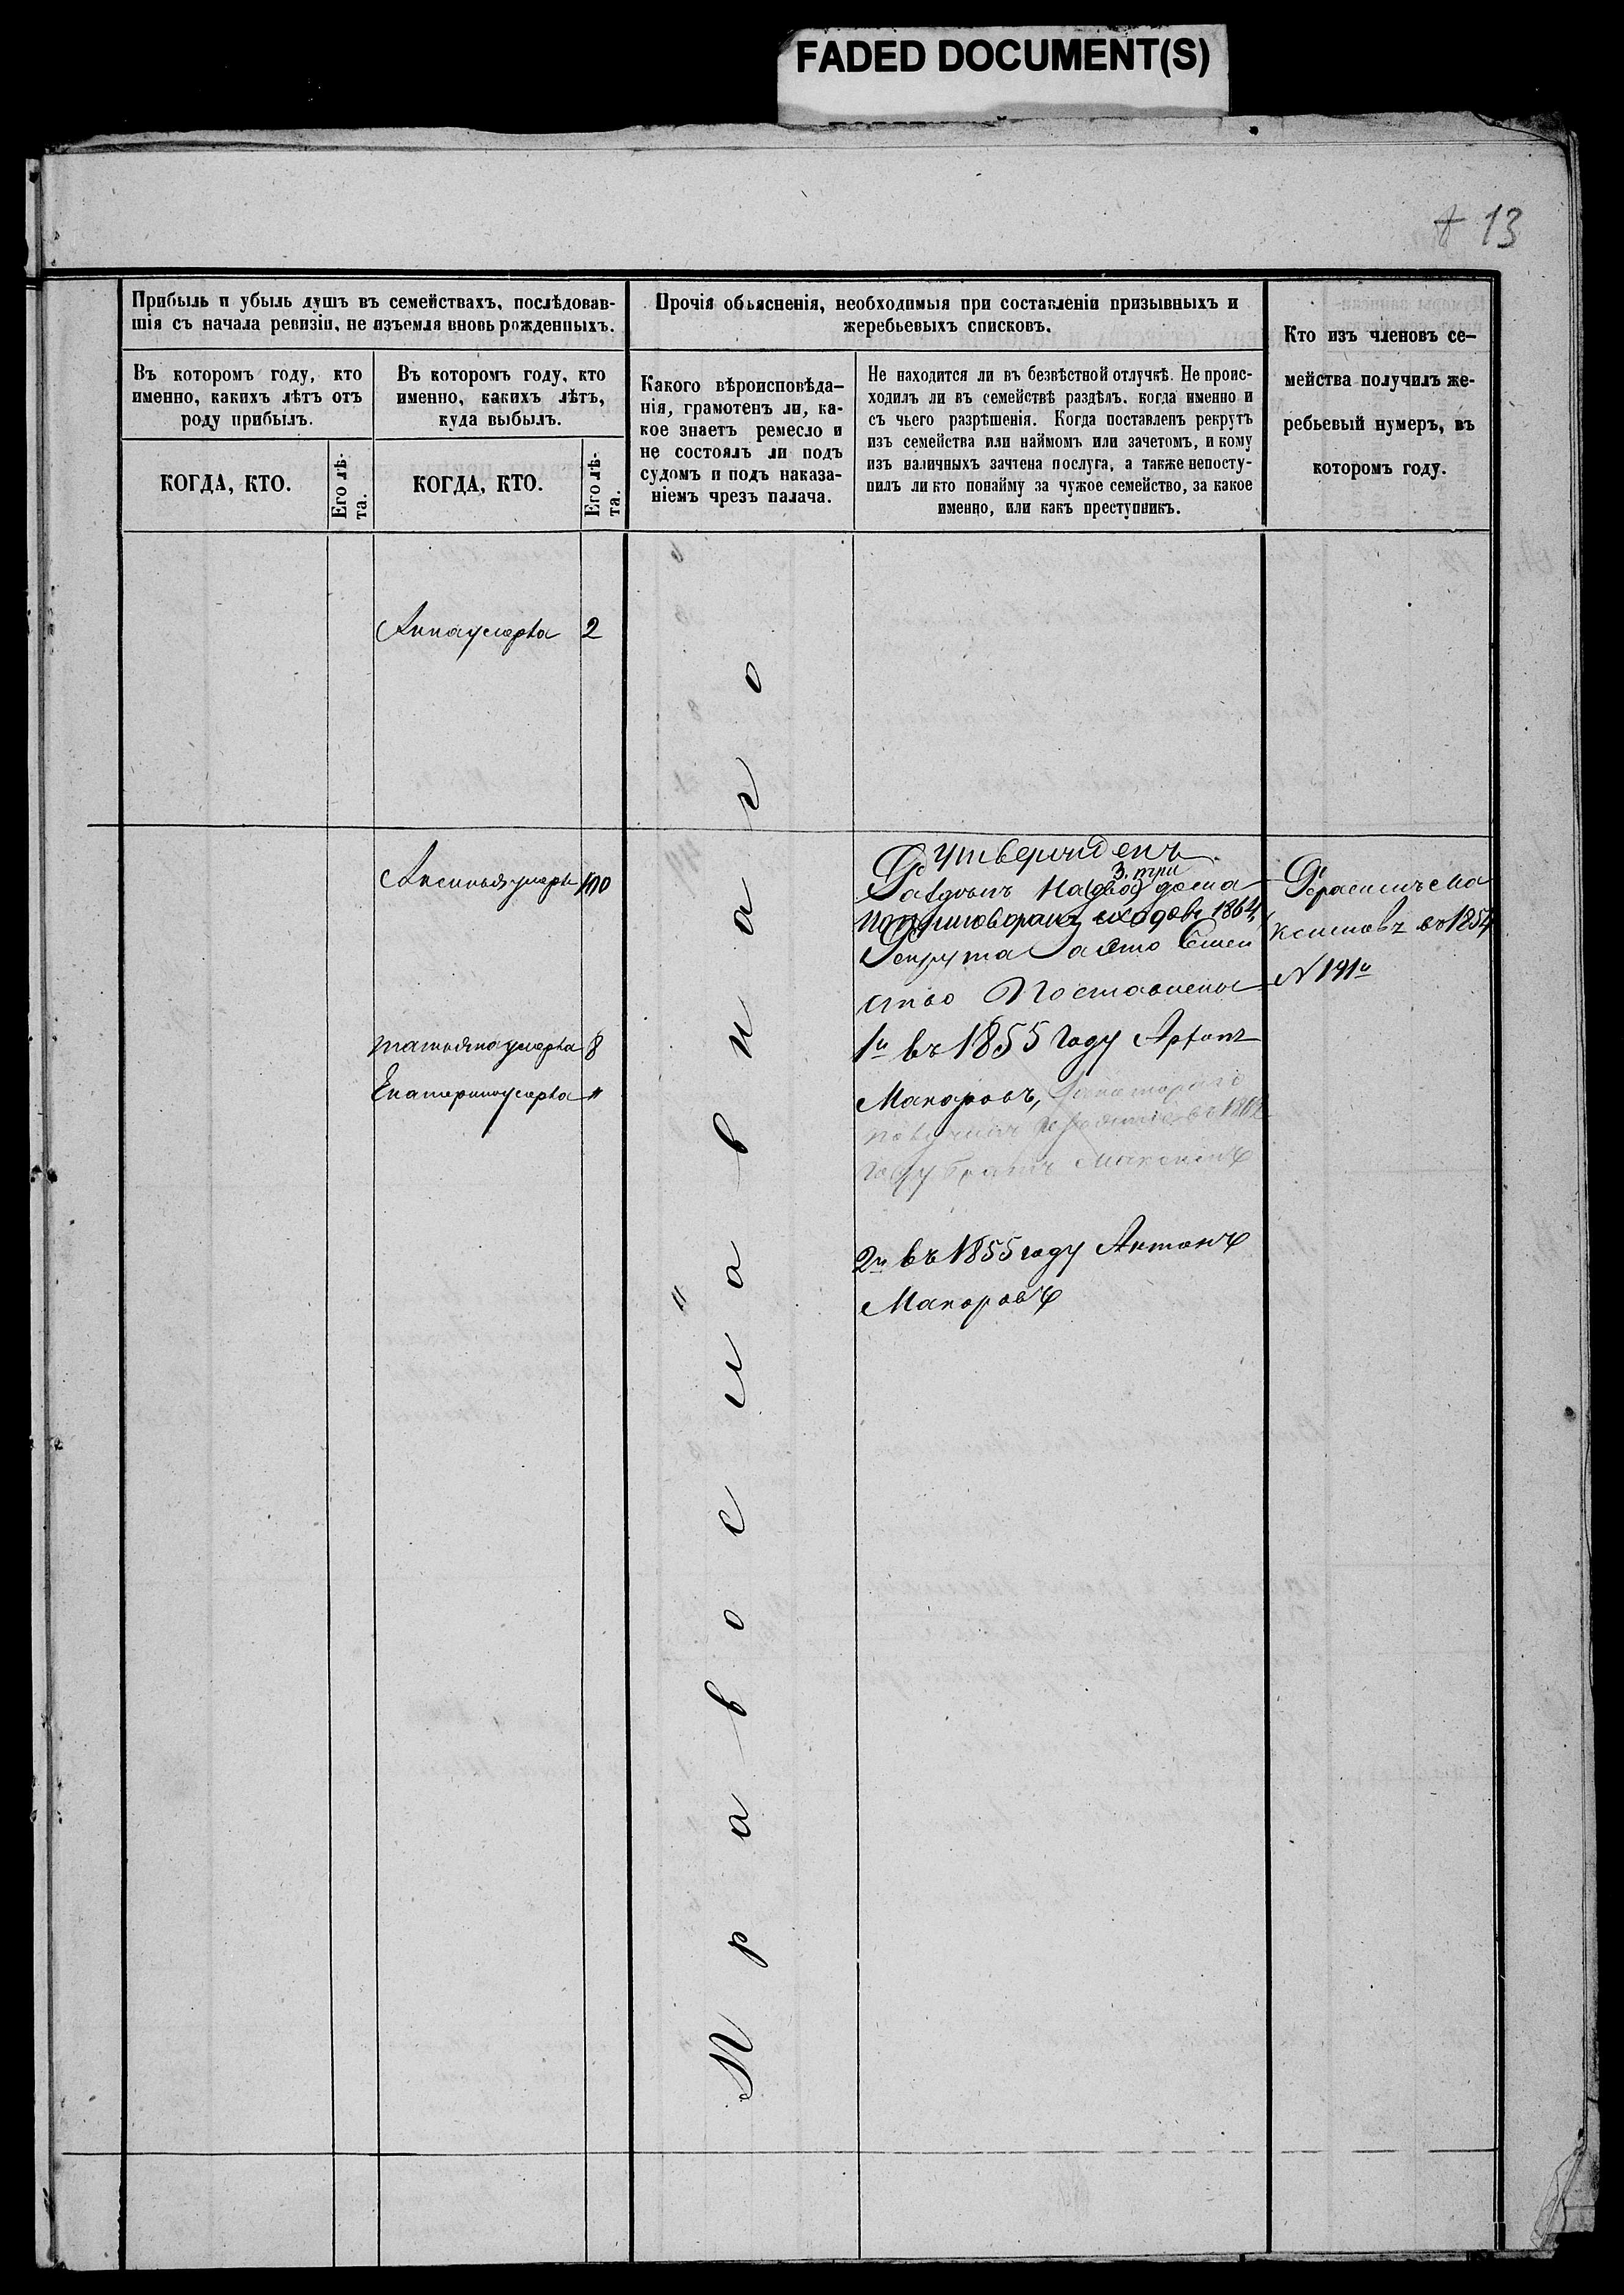 FADED DOCUMENT(S)
13
Прибыль и убыль душъ въ семействахъ, послѣдовав-
шія съ начала ревизіи, не изъемля вновь рожденныхъ.
Въ которомъ году, кто
именно, какихъ лѣтъ отъ
роду прибылъ.
КОГДА, КТО.
Его лѣ-
та.
Въ которомъ году, кто
именно, какихъ лѣтъ,
куда выбылъ.
КОГДА, КТО.
Его лѣ-
та.
Прочія объясненія, необходимыя при составленіи призывныхъ и
жеребьевыхъ списковъ.
Какого вѣроисповѣда-
нія, грамотенъ ли, ка-
кое знаетъ ремесло и
не состоялъ ли подъ
судомъ и подъ наказа-
ніемъ чрезъ палача.
Не находится ли въ безвѣстной отлучкѣ. Не проис-
ходилъ ли въ семействѣ раздѣлъ, когда именно и
съ чьего разрѣшенія. Когда поставленъ рекрутъ
изъ семейства или наймомъ или зачетомъ, и кому
изъ наличныхъ зачтена послуга, а также непосту-
пилъ ли кто понайму за чужое семейство, за какое
именно, или какъ преступникъ.
Кто изъ членовъ се-
мейства получилъ же-
ребьевый нумеръ, въ
которомъ году.
Анна умерла 2
Православнаго
Аксинья умерла 100
татьяна умерла 8
Екатерина умерла "
утвержденъ
3. три
Раздѣлъ на (два) дома
1864
Рекрута
ство Поставлены
1й въ 1855 Году
Макаровъ,
въ 186
Году братъ Максимъ
2й въ 1855 году Антонъ
Макаровъ
Герасимъ Ма
ксимовъ въ 1854
N 191й